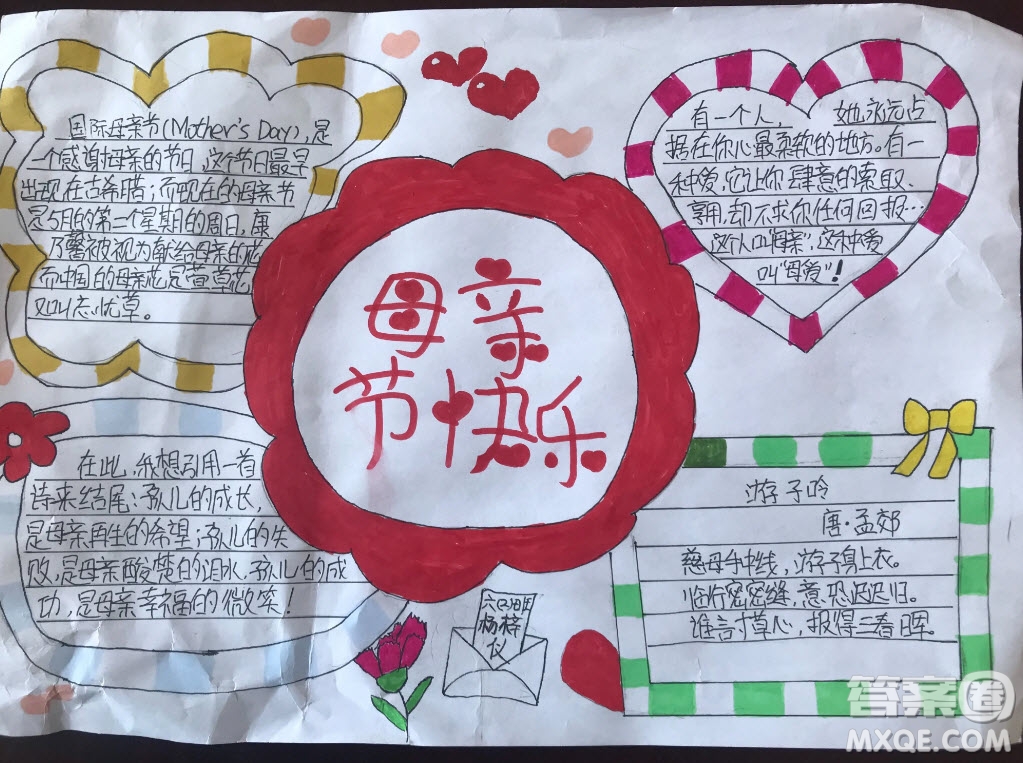 国际母亲节(Mother's Day),是
一个感谢母亲的节日,这个节日最早
出现在古希腊;而现在的母亲节
是5月的第二个星期的周日,康
乃馨被视为献给母亲的花
而中国的母亲花是萱草花,
又叫忘忧草。
母亲
节快乐
有一个人, 她永远占
据在你心最柔软的地方。有一
种爱,它让你肆意的索取、
享用,却不求你任何回报…
这个人叫“母亲”,这个种爱
叫“母爱”!
在此,我想引用一首
诗来结尾:孩儿的成长,
是母亲再生的希望;孩儿的失
败,是母亲酸楚的泪水,孩儿的成
功,是母亲幸福的微笑!
游子吟
唐·孟郊
慈母手中线,游子身上衣。
临行密密缝,意恐迟迟归。
谁言寸草心,报得三春晖。
杨梓
答案圈
MXQE.COM